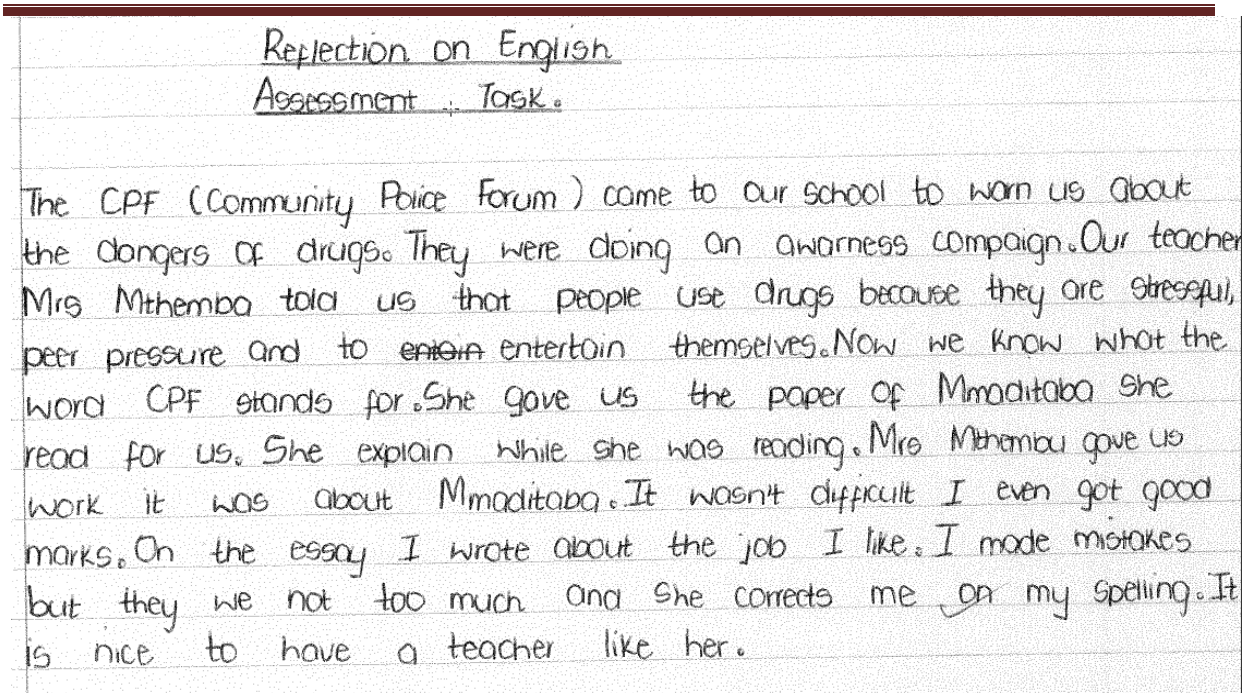 Reflection on English
Assessment Task.
The CPF (Community Police Forum) came to our school to warn us about
the dangers of drugs. They were doing an awarness compaign. Our teacher
Mrs Mthemba told us that people use drugs because they are stressful,
peer pressure and to entain entertain themselves. Now we know what the
word CPF stands for. She gave us the paper of Mmaditaba she
read for us. She explain while she was reading. Mrs Mthembu gave us
work it was about Mmaditaba. It wasn't difficult I even got good
marks. On the essay I wrote about the job I like. I made mistakes
but they we not too much and she corrects me on my spelling. It
is nice to have a teacher like her.